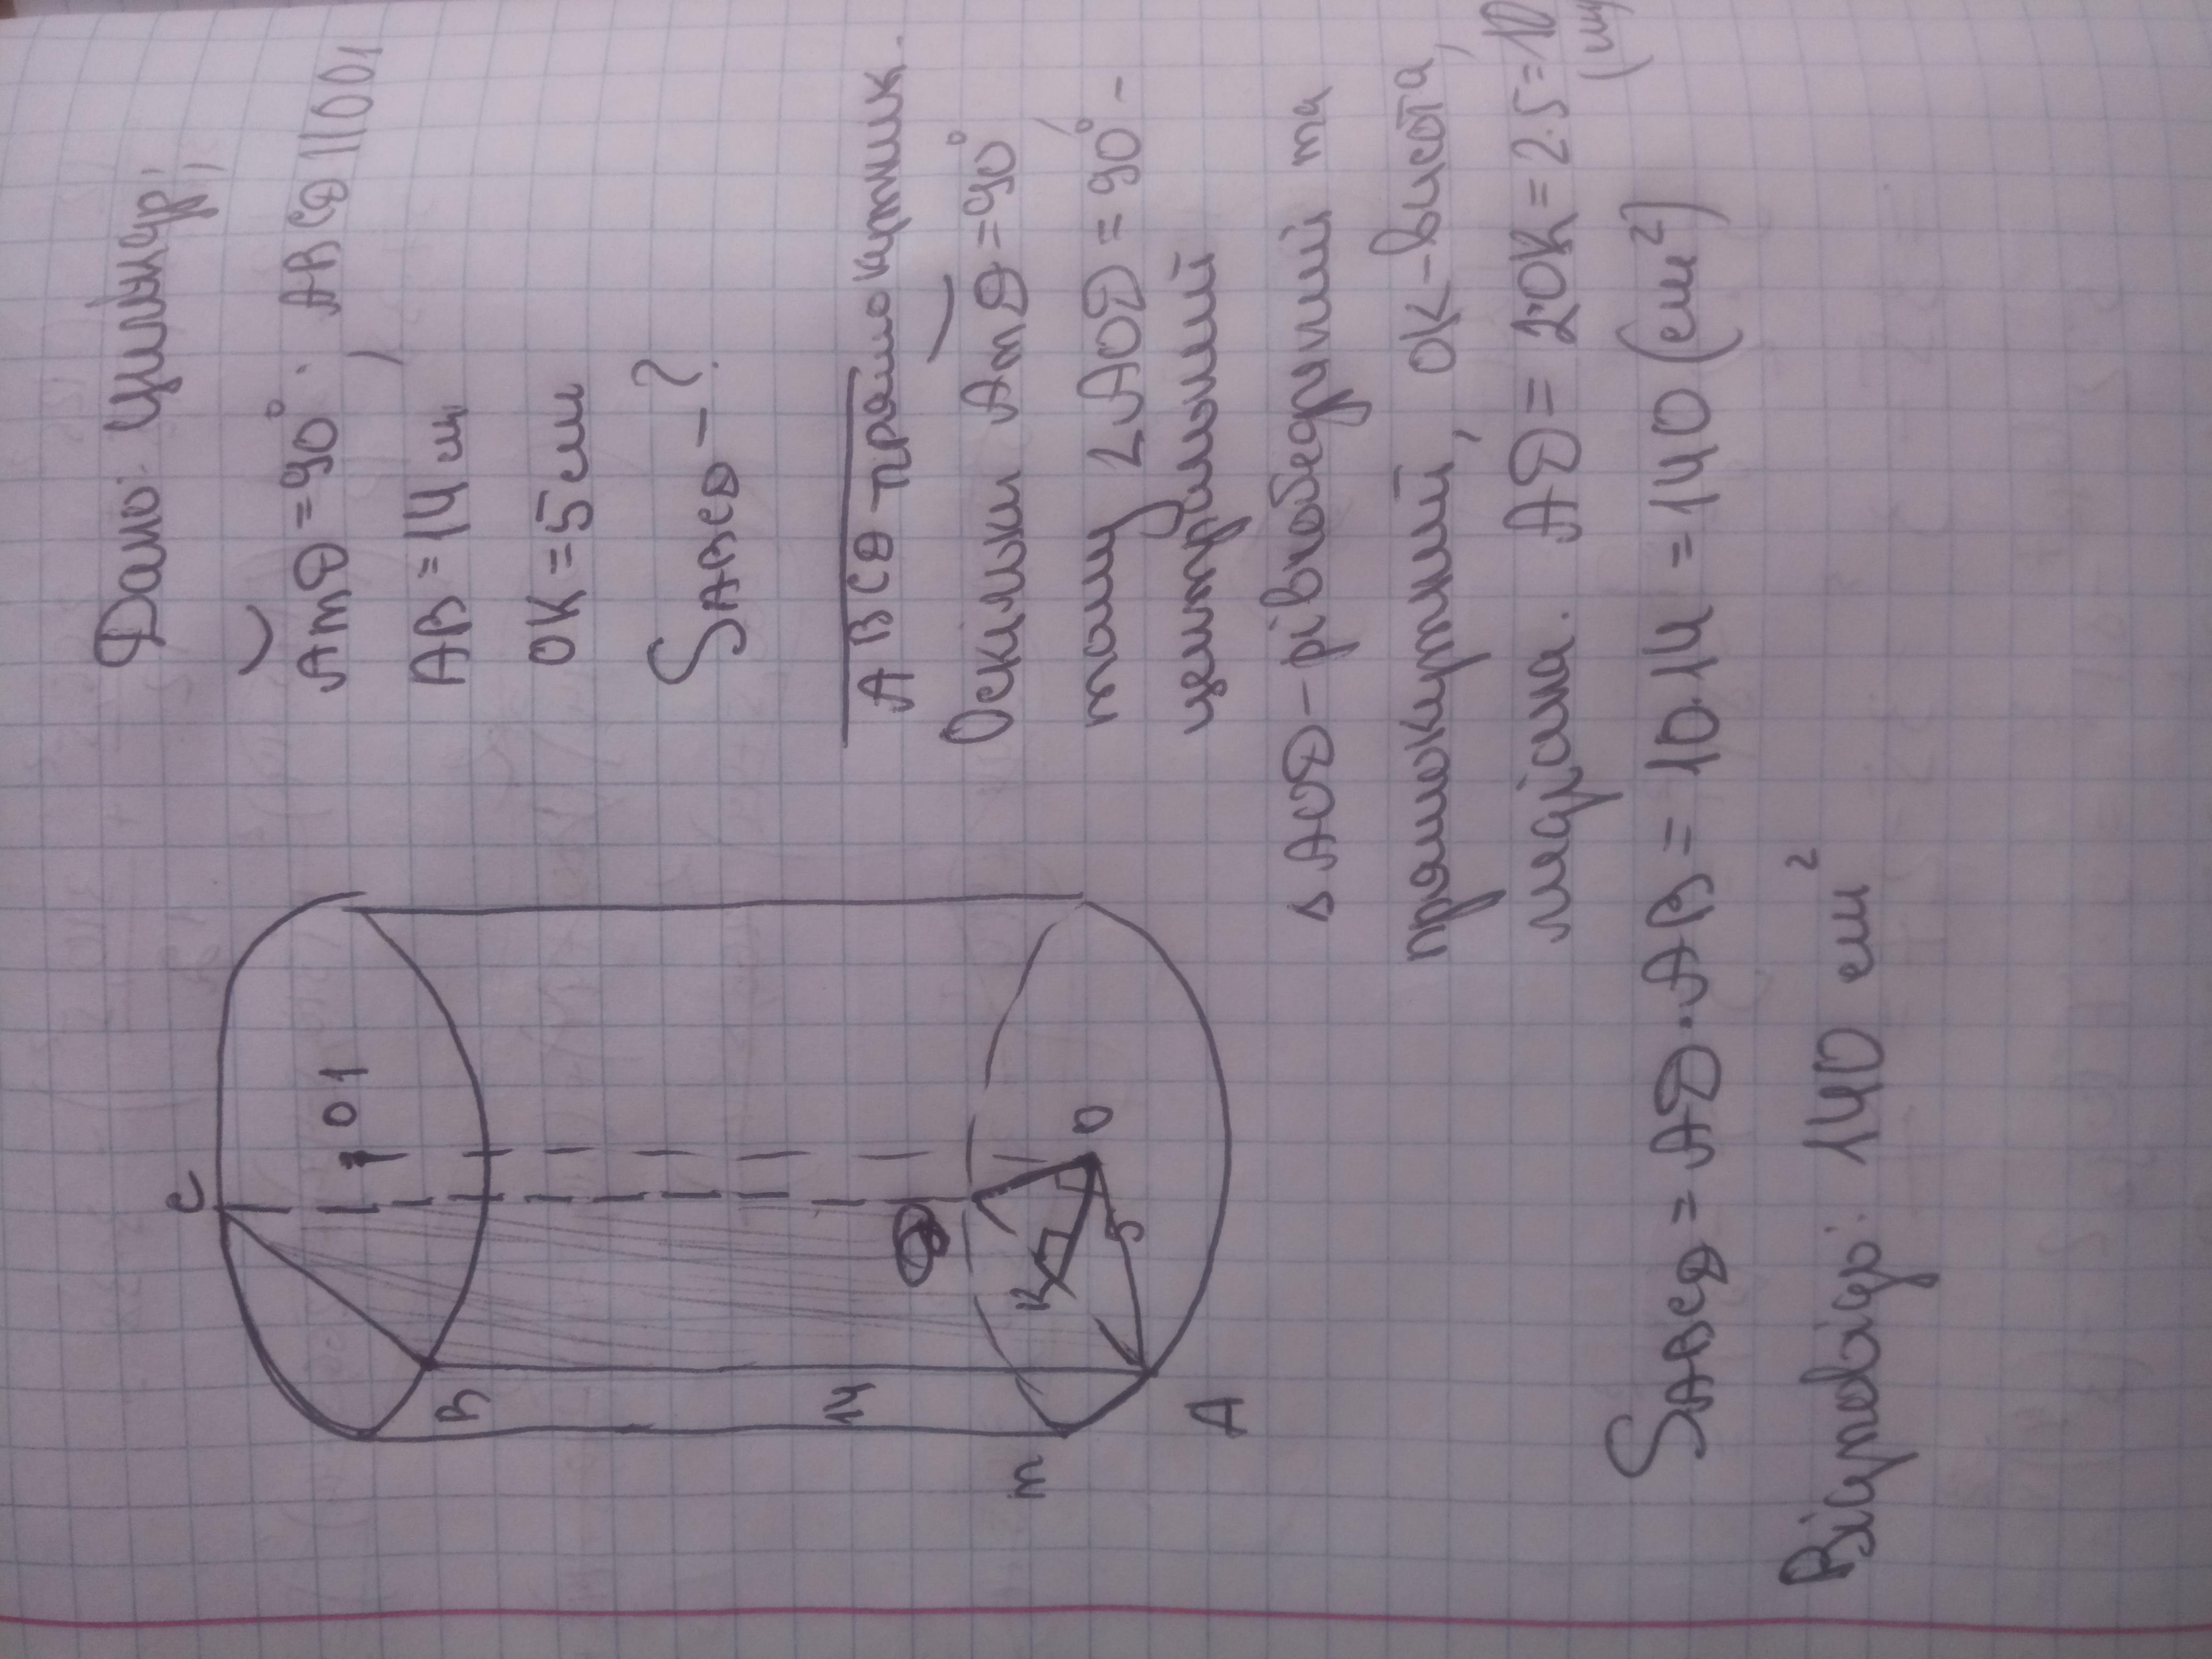 Дано: Циліндр;
AmD = 90°; ABCD || OO1
AB = 14 см
OK = 5 см
SABCD - ?
ABCD - прямокутник.
Оскільки AmD = 90°,
тому ∠AOD = 90° -
центральний
∆ AOD - рівнобедрений та
прямокутний, OK - висота,
медіана. AD = 2·OK = 2·5 = 10
(см)
SABCD = AD · AB = 10·14 = 140 (см²)
Відповідь: 140 см²
C
O1
B
14
D
K
O
5
m
A